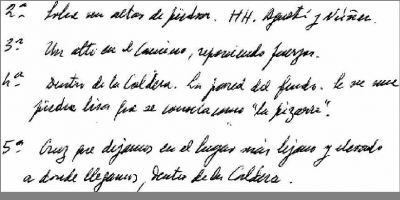 2ª Sobre un altar de piedra. HH. Agustí y Núñez.
3ª Un alto en el Camino, reponiendo fuerzas.
4ª Dentro de la Caldera. La pared del fondo. Se ve una
piedra lisa que se conocía como "la pizarra".
5ª Cruz que dejamos en el lugar más lejano y elevado
a donde llegamos, dentro de la Caldera.